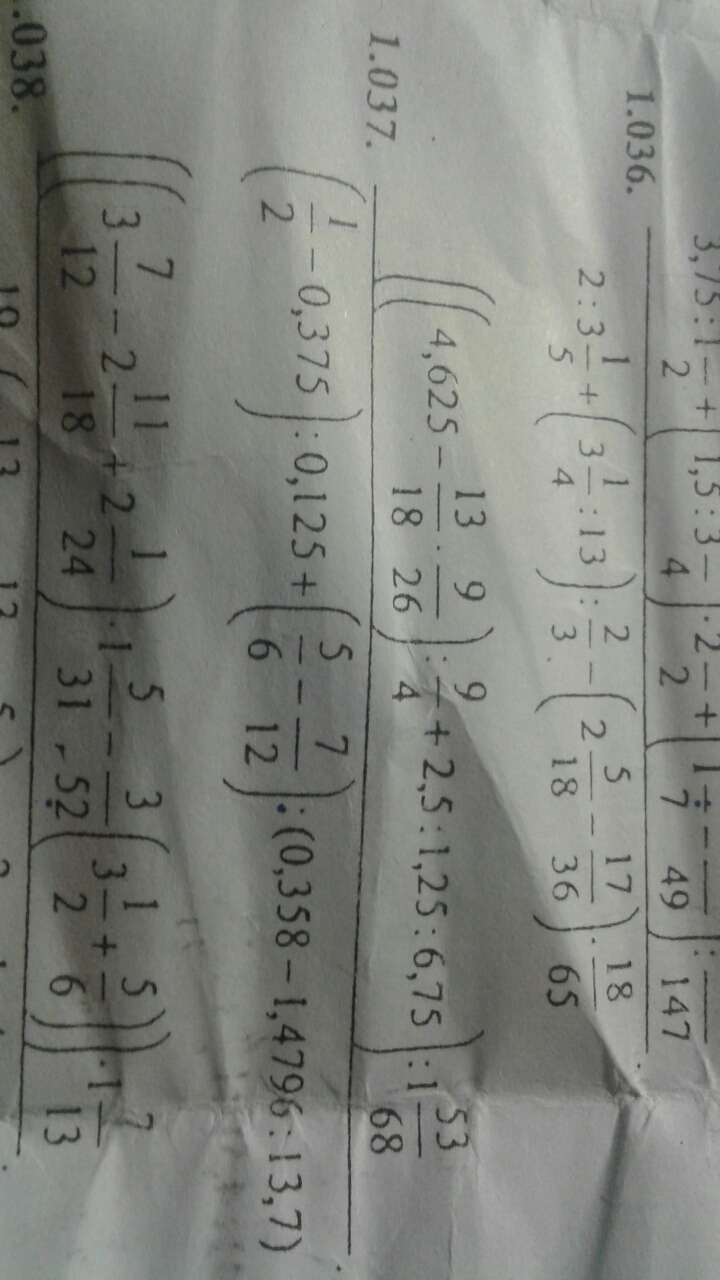 3,75 : 1 1/2 + (1,5 : 3 /4) · 2 /2 + (1 /7 - /49) : /147
1.036.
2 : 3 1/5 + (3 1/4 : 13) : 2/3 - (2 5/18 - 17/36) · 18/65
1.037.
((4,625 - 13/18 · 9/26) : 9/4 + 2,5 : 1,25 : 6,75) : 1 53/68
(1/2 - 0,375) : 0,125 + (5/6 - 7/12) : (0,358 - 1,4796 : 13,7)
.038.
((3 7/12 - 2 11/18 + 2 1/24) · 1 5/31 - 3/52 (3 1/2 + 5/6)) · 1 7/13